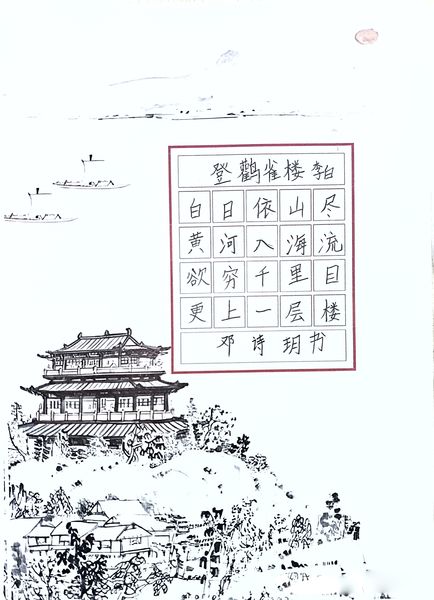 登鹳雀楼 李白
白日依山尽
黄河入海流
欲穷千里目
更上一层楼
邓诗玥书